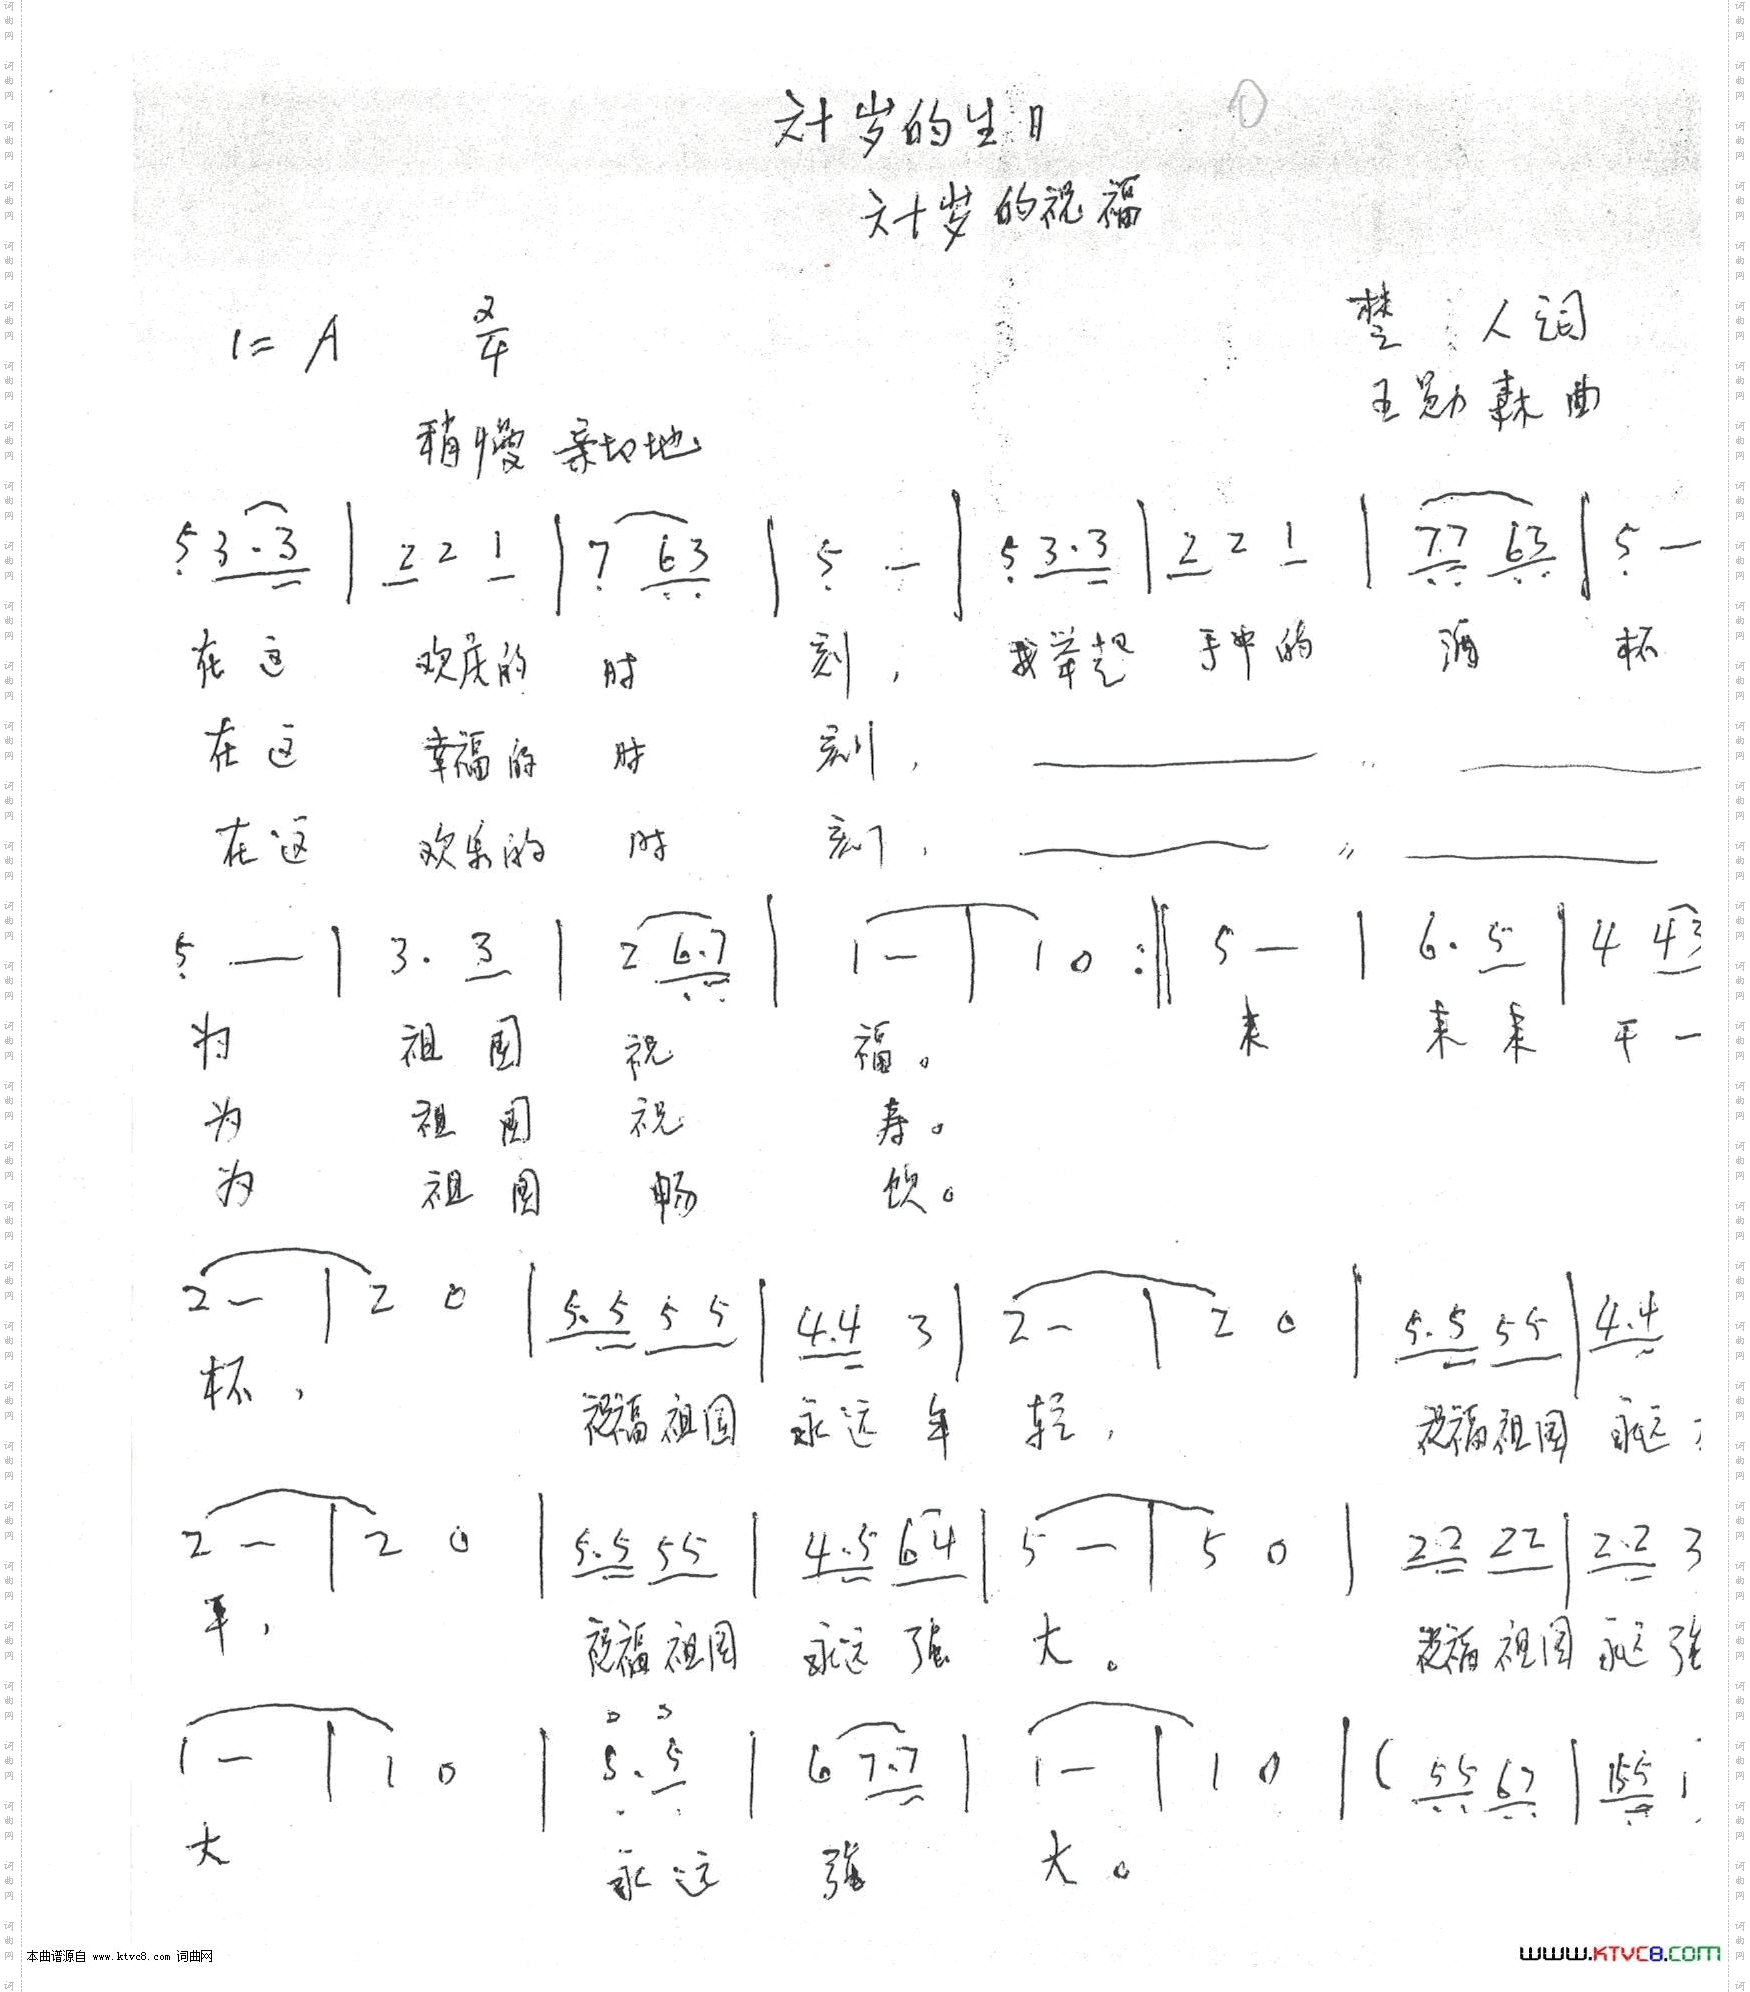 六十岁的生日
六十岁的祝福
1=A 2/4
楚 人词
王勋 森曲
稍慢 亲切地
5 3.3 | 2 2 1 | 7 63 | 5 - | 5 3.3 | 2 2 1 | 7.7 63 | 5 -
在这 欢庆的 时 刻, 我举起 手中的 酒 杯
在这 幸福的 时 刻, 〃
在这 欢乐的 时 刻, 〃
5 — | 3. 3 | 2 6.7 | 1 - | 1 0 :‖ 5 - | 6. 5 | 4 43
为 祖 国 祝 福。 来 来 来 干 一
为 祖 国 祝 寿。
为 祖 国 畅 饮。
2 - | 2 0 | 5.5 5 5 | 4.4 3 | 2 - | 2 0 | 5.5 55 | 4.4
杯, 祝福祖国 永远 年 轻, 祝福祖国 永远
2 - | 2 0 | 5.5 55 | 4.5 64 | 5 - | 5 0 | 2.2 22 | 2.2 3
平, 祝福祖国 永远 强 大。 祝福祖国 永远 强
1 - | 1 0 | 5. 5 | 6 7.7 | 1 - | 1 0 | ( 55 67 | 155 1
大 永 远 强 大。
本曲谱源自 www.ktvc8.com 词曲网
www.KTVC8.com
词曲网